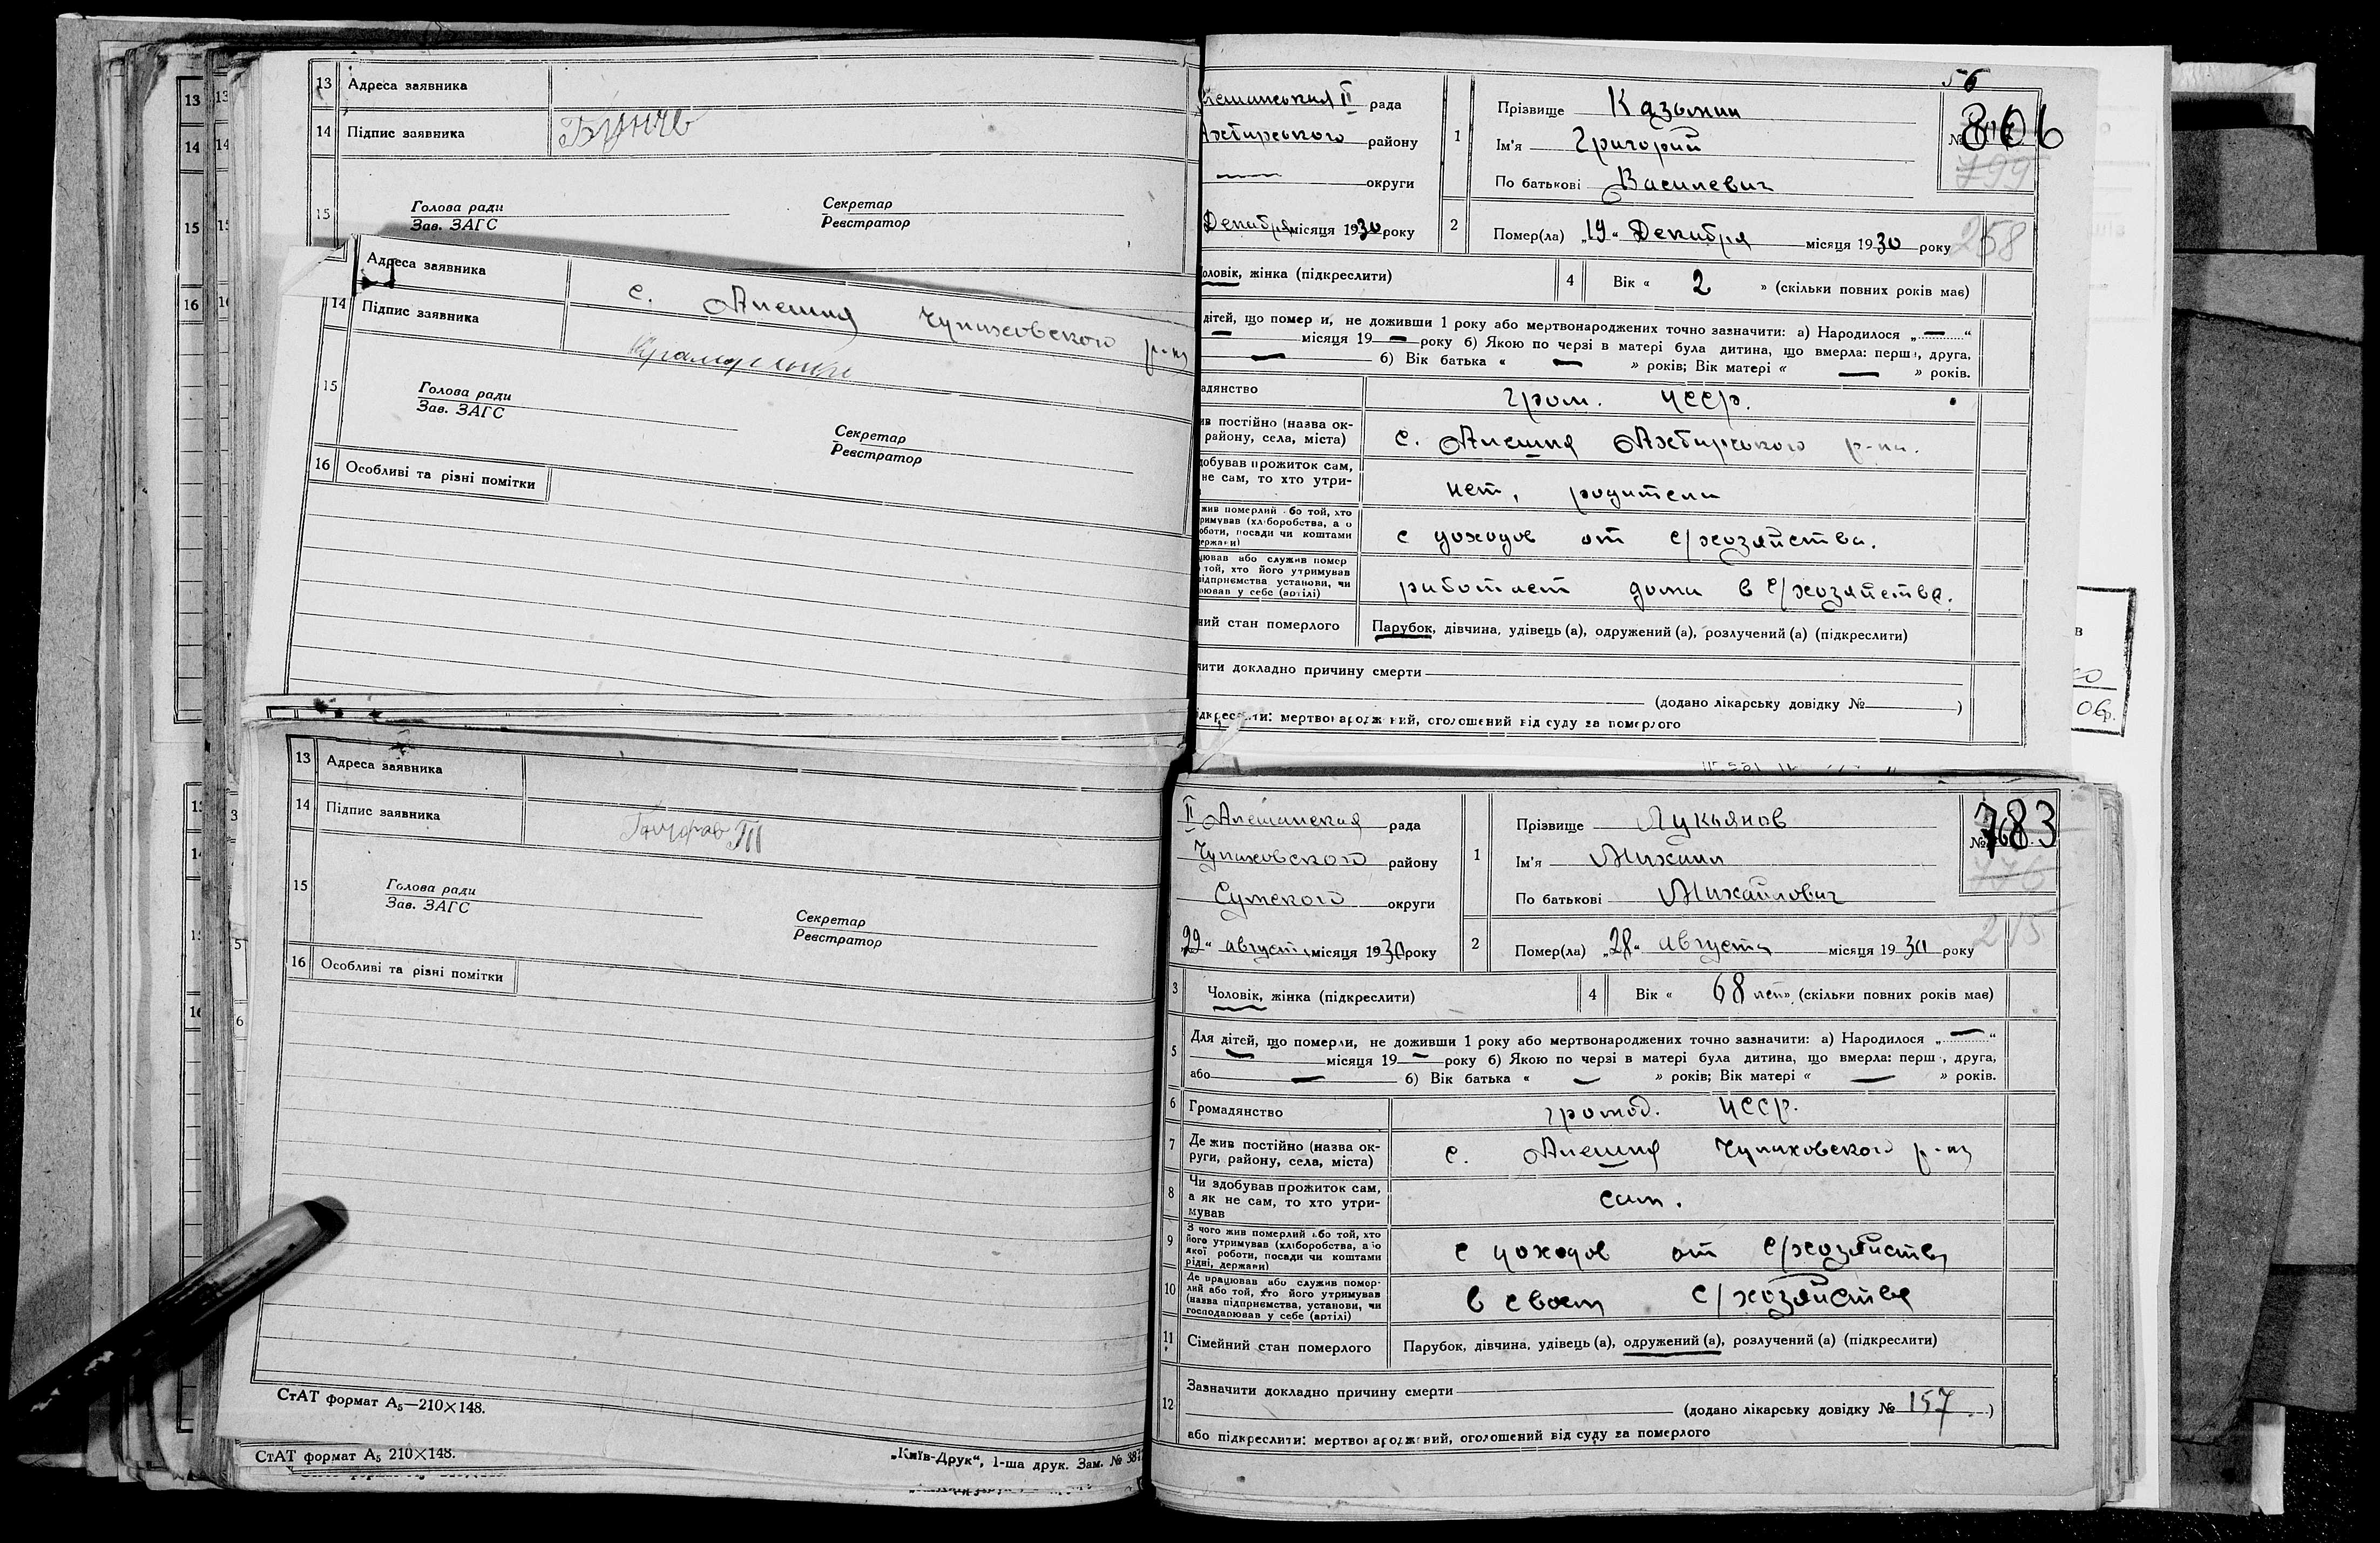 13 Адреса заявника
14 Підпис заявника
15 Голова ради Секретар
Зав. ЗАГС Реєстратор
Адреса заявника с. Алешня Чупаховского р-на
14 Підпис заявника
15 Голова ради
Зав. ЗАГС
Секретар
Реєстратор
16 Особливі та різні помітки
13 Адреса заявника
14 Підпис заявника
15 Голова ради
Зав. ЗАГС
Секретар
Реєстратор
16 Особливі та різні помітки
СтАТ формат А5—210×148.
СтАТ формат А5 210×148.
„Київ-Друк“, 1-ша друк. Зам. №
56
II рада
Ахтирського району
округи
Декабря місяця 1930 року
1 Прізвище Казьмин
Ім'я Григорий
По батькові Василевич
№ 806
799
2 Помер(ла) „19“ Декабря місяця 1930 року
258
чоловік, жінка (підкреслити)
4 Вік « 2 » (скільки повних років має)
дітей, що померли, не доживши 1 року або мертвонароджених точно зазначити: а) Народилося „—“
— місяця 19— року б) Якою по черзі в матері була дитина, що вмерла: перша, друга,
— б) Вік батька « — » років; Вік матері « — » років.
адянство гром. УССР.
ив постійно (назва ок-
району, села, міста) с. Алешня Ахтирського р-на.
добував прожиток сам,
не сам, то хто утри- нет, родители
жив померлий або той, хто
римував (хліборобства, або
роботи, посади чи коштами
держави) с доходов от с/хозяйства.
цював або служив помер
той, хто його утримував
підприємства установи, чи
рював у себе (артілі) работает дома в с/хозяйстве.
ний стан померлого Парубок, дівчина, удівець (а), одружений (а), розлучений (а) (підкреслити)
чити докладно причину смерти
(додано лікарську довідку № )
ідкреслити: мертвонароджений, оголошений від суду за померлого
II Алешанская рада
Чупаховского району
Сумского округи
„29“ августа місяця 1930 року
1 Прізвище Лукьянов
Ім'я Михаил
По батькові Михайлович
№ 783
776
2 Помер(ла) „28“ августа місяця 1930 року
215
3 Чоловік, жінка (підкреслити)
4 Вік « 68 лет » (скільки повних років має)
5 Для дітей, що померли, не доживши 1 року або мертвонароджених точно зазначити: а) Народилося „—“
— місяця 19— року б) Якою по черзі в матері була дитина, що вмерла: перша, друга,
або — б) Вік батька « — » років; Вік матері « — » років.
6 Громадянство громад. УССР.
7 Де жив постійно (назва ок-
руги, району, села, міста) с. Алешня Чупаховского р-на
8 Чи здобував прожиток сам,
а як не сам, то хто утри-
мував сам.
9 З чого жив померлий або той, хто
його утримував (хліборобства, або
якої роботи, посади чи коштами
рідні, держави) с доходов от с/хозяйства
10 Де працював або служив помер-
лий або той, хто його утримував
(назва підприємства, установи, чи
господарював у себе (артілі) в своем с/хозяйстве
11 Сімейний стан померлого Парубок, дівчина, удівець (а), одружений (а), розлучений (а) (підкреслити)
12 Зазначити докладно причину смерти
(додано лікарську довідку № 157.)
або підкреслити: мертвонароджений, оголошений від суду за померлого